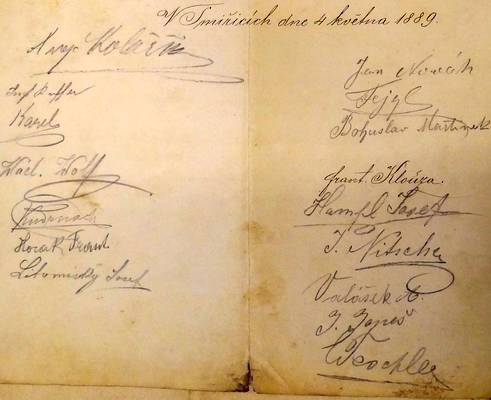 V Smiřicích dne 4 května 1889.
Kolářík
Karel
Václ. Wolf
Horák Frant.
Litomiský Josef
Jan Novák
Fejgl
Bohuslav Martinek
frant. Klouza.
Hampl Josef
J. Nitsche
Valášek A.
J. Jareš